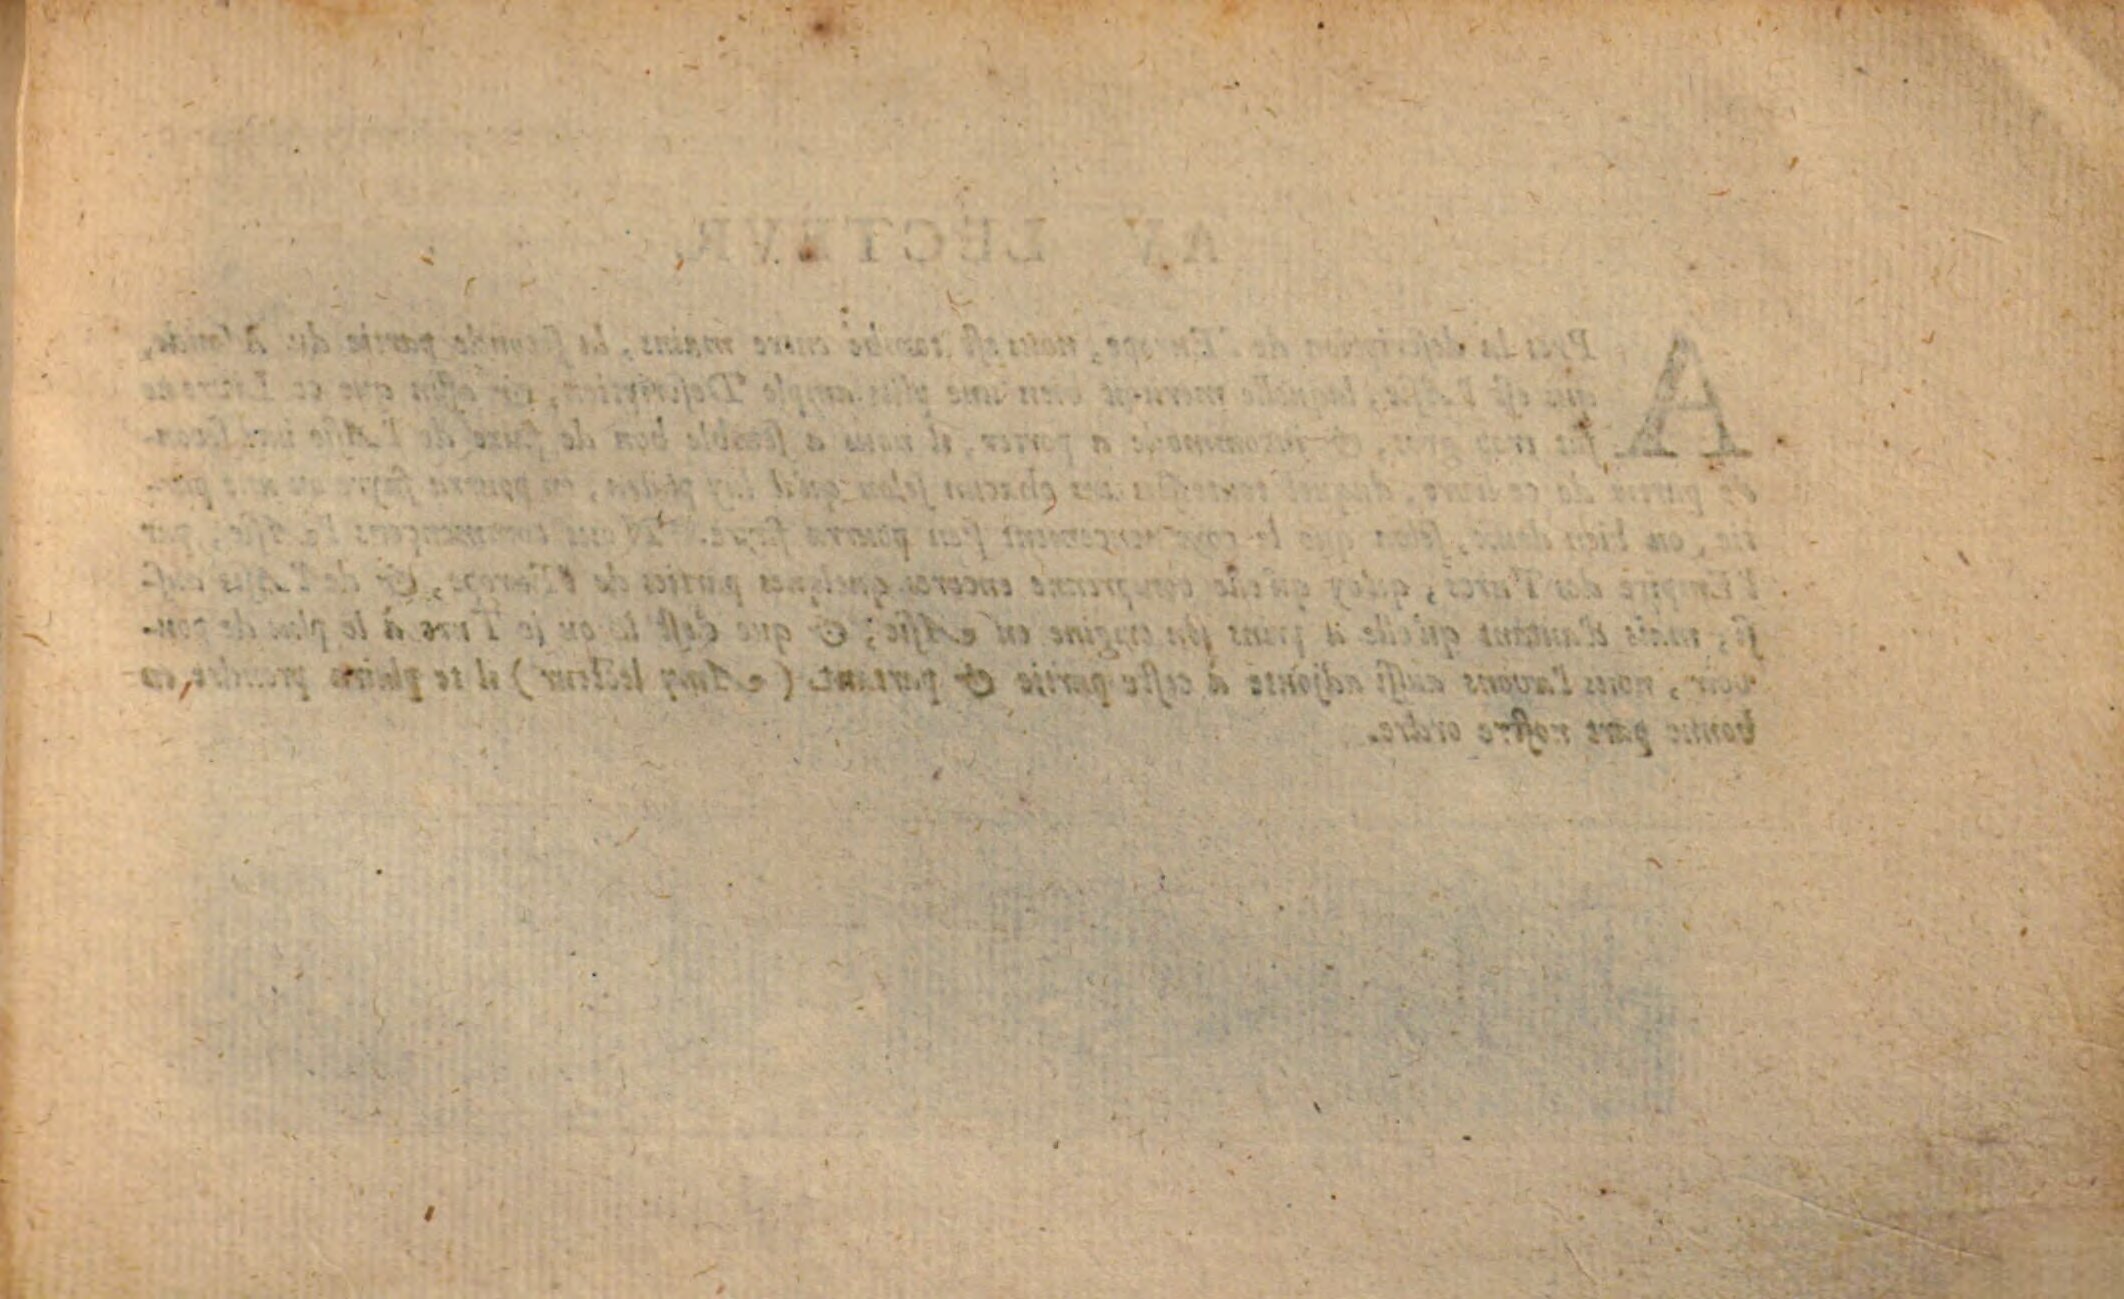 AV LECTEVR.
APres la description de l'Europe, nous est tombé entre mains, la seconde partie du Monde,
qui est l'Asie, laquelle meritoit bien une plus ample Description, & affin que ce Livre ne
fut trop gros, & incommode a porter, il nous a semblé bon de faire de l'Asie une secon-
de partie de ce livre, duquel un chacun selon qu'il luy plaira, en pourra fayre ou une par-
tie, ou bien deux, selon que le plus pourra fayre. Nous commençons l'Asie, par
l'Empire des Turcs, qu'elle comprenne encores quelques parties de l'Europe, & de l'Asie auſ-
ſi, mais d'autant qu'elle à prins ſon origine en Aſie, & que c'eſt là ou le Turc à le plus de pou-
voir, nous l'avons auſſi adjointe à ceſte partie & partant (Amy lecteur) il te plaira prendre en
bonne part noſtre ordre.